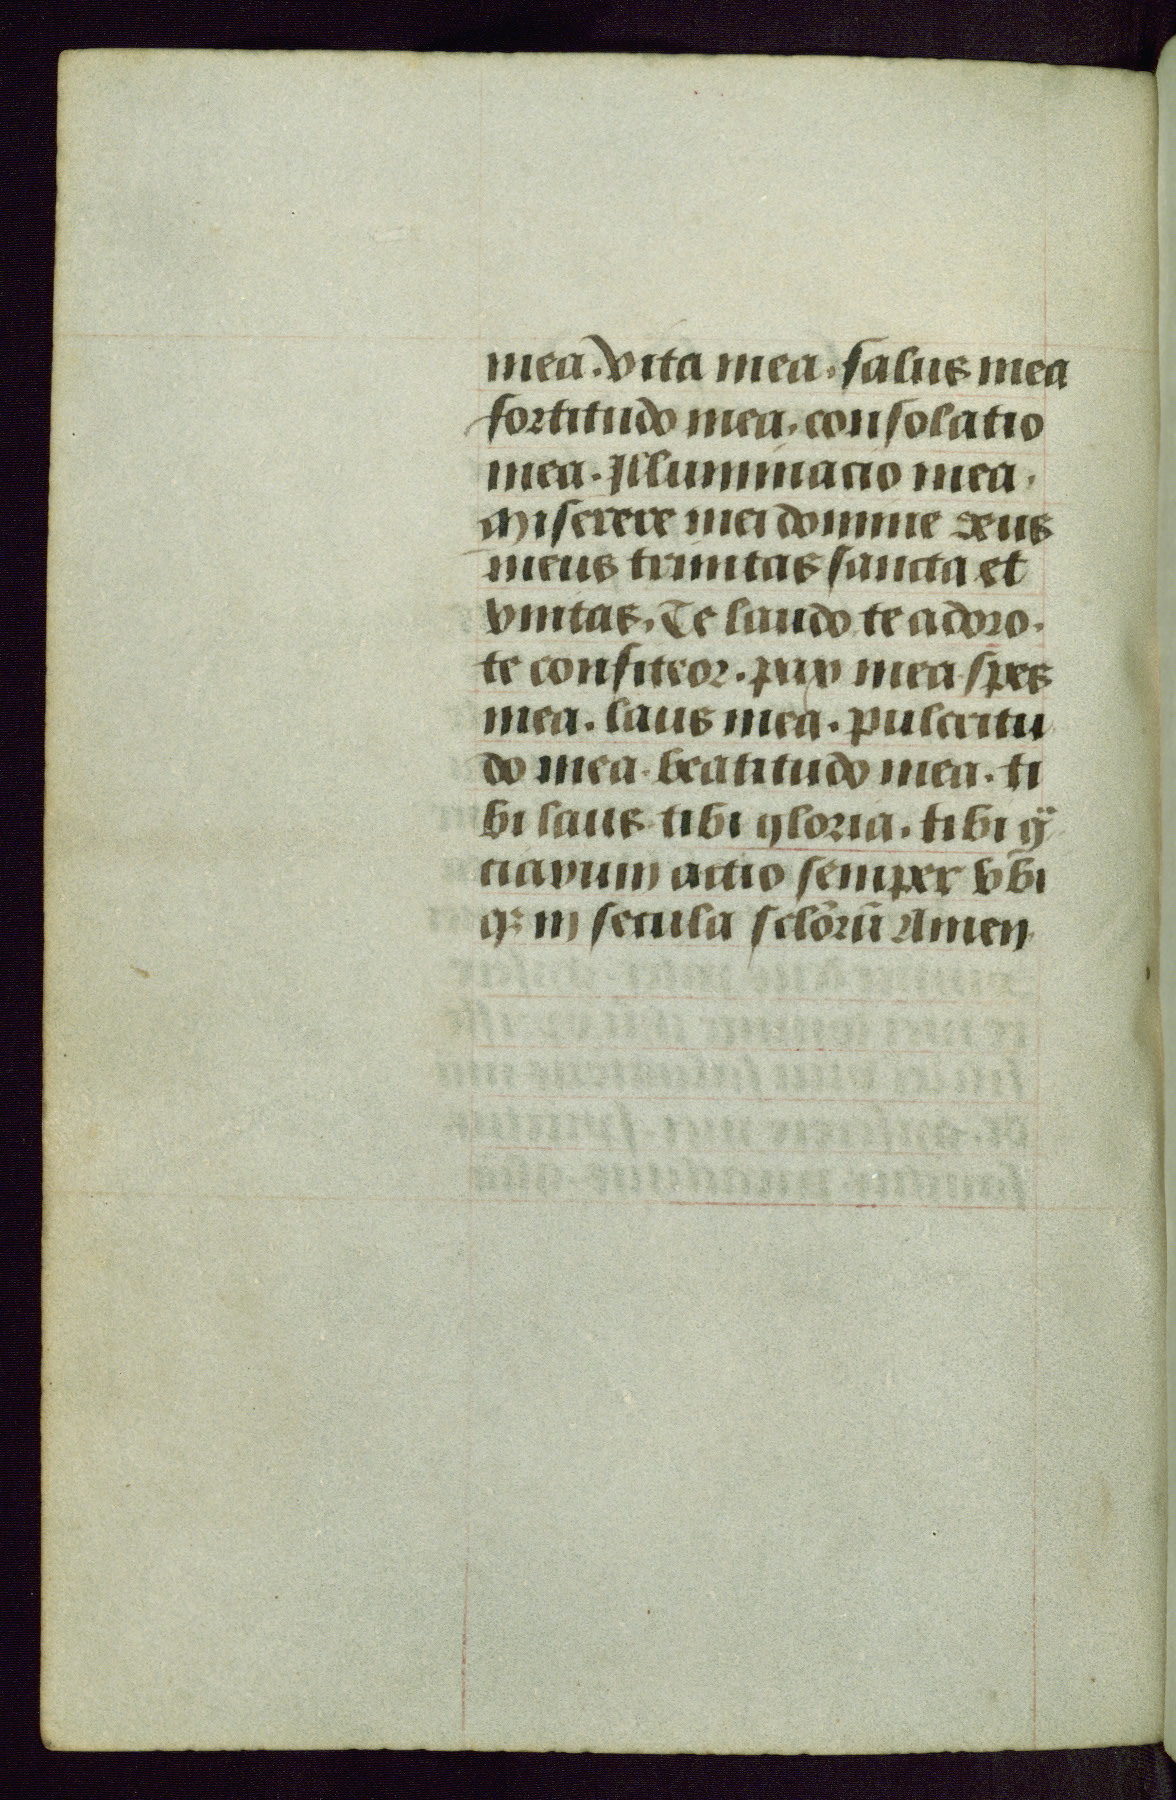 mea. vita mea. salus mea
fortitudo mea. consolatio
mea. Illuminacio mea.
Miserere mei domine deus
meus trinitas sancta et
vnitas. Te laudo te adoro.
te confiteor. pax mea spes
mea. laus mea. pulcritu
do mea. beatitudo mea. ti
bi laus tibi gloria. tibi gͣ
ciarum actio semper vbi
qꝫ in secula sclõrũ Amen